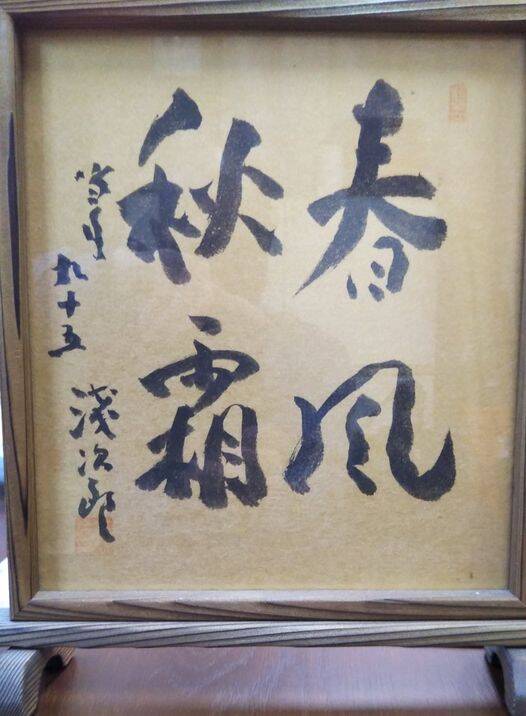 春風
秋霜
九十五
淺次郎